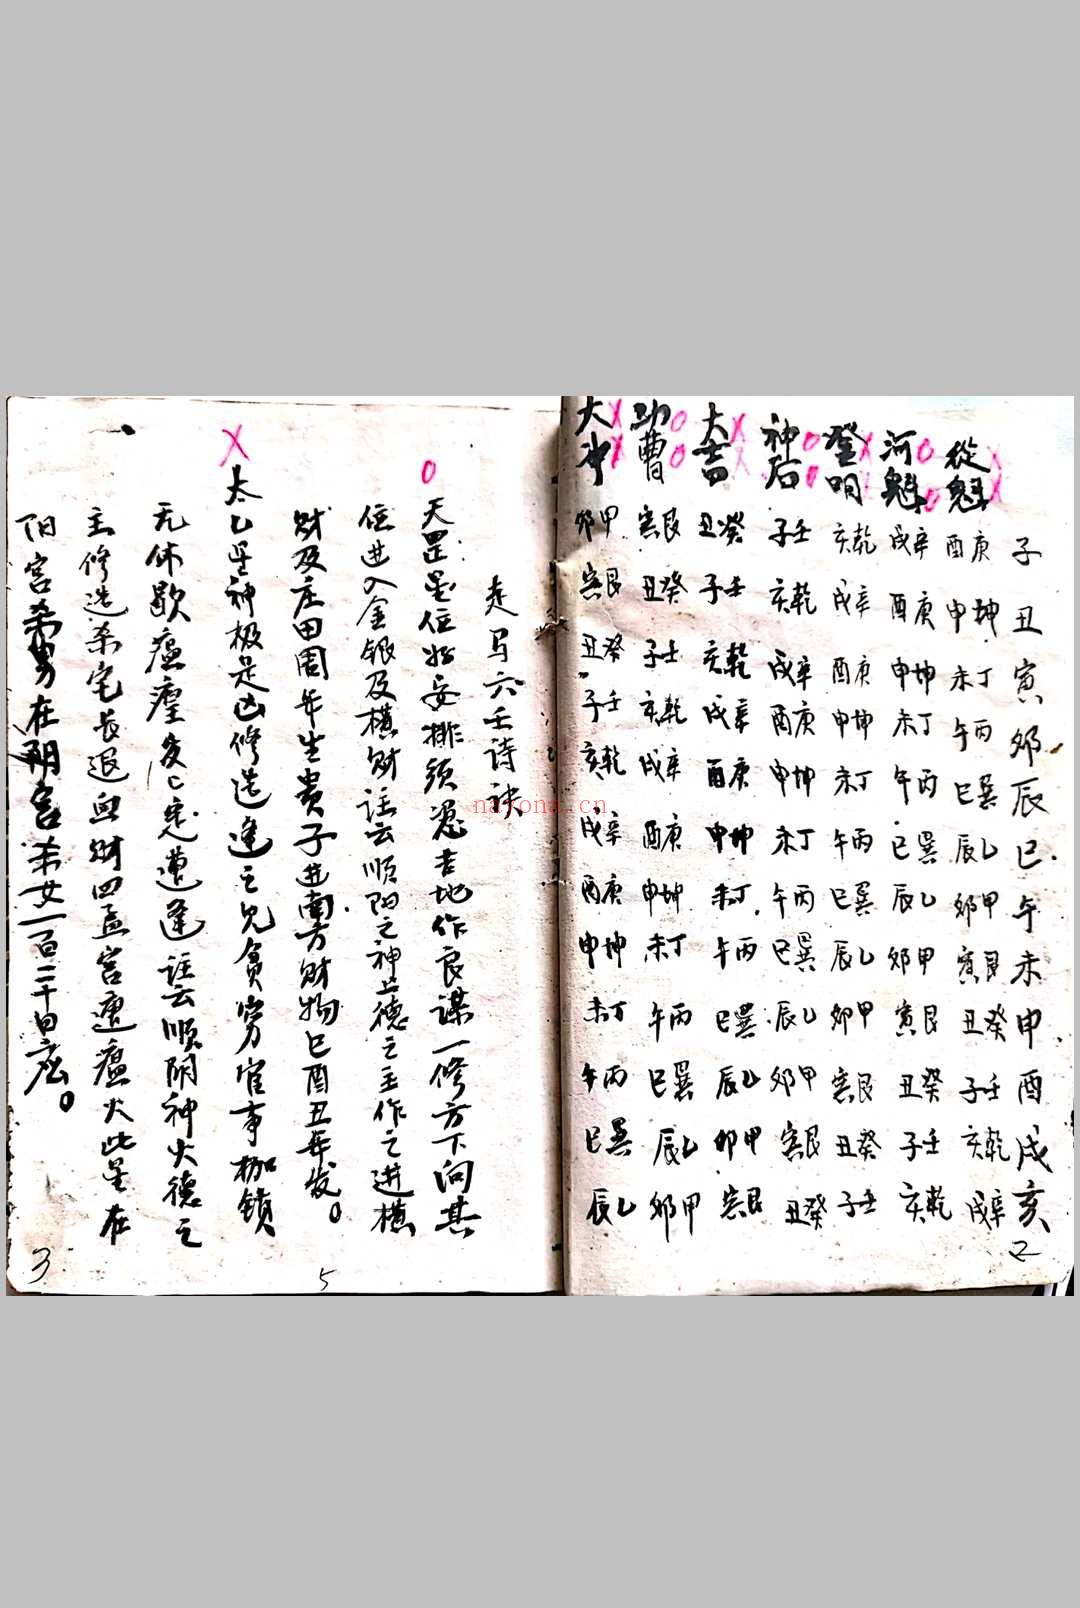 子丑寅卯辰巳午未申酉戌亥
從魁 酉庚 申坤 未丁 午丙 巳巽 辰乙 卯甲 寅艮 丑癸 子壬 亥乾 戌辛
河魁 戌辛 酉庚 申坤 未丁 午丙 巳巽 辰乙 卯甲 寅艮 丑癸 子壬 亥乾
登明 亥乾 戌辛 酉庚 申坤 未丁 午丙 巳巽 辰乙 卯甲 寅艮 丑癸 子壬
神后 子壬 亥乾 戌辛 酉庚 申坤 未丁 午丙 巳巽 辰乙 卯甲 寅艮 丑癸
大吉 丑癸 子壬 亥乾 戌辛 酉庚 申坤 未丁 午丙 巳巽 辰乙 卯甲 寅艮
功曹 寅艮 丑癸 子壬 亥乾 戌辛 酉庚 申坤 未丁 午丙 巳巽 辰乙 卯甲
大冲 卯甲 寅艮 丑癸 子壬 亥乾 戌辛 酉庚 申坤 未丁 午丙 巳巽 辰乙
2
走马六壬诗诀
天罡星位好安排须觅吉地作良谋一修方下向其
位进入金银及横财 註云顺阳之神土德之主作之进横
财及庄田周年生贵子进南方财物巳酉丑年发。
太乙星神极是凶修造逢之见貧穷官事枷锁
无休歇瘟瘴定遭逢註云顺阴神火德之
主修造杀宅长退血财四孟宫遭瘟火此星在
阳宫杀男在阴宫杀女一百二十日应。
5
3
nayona.cn